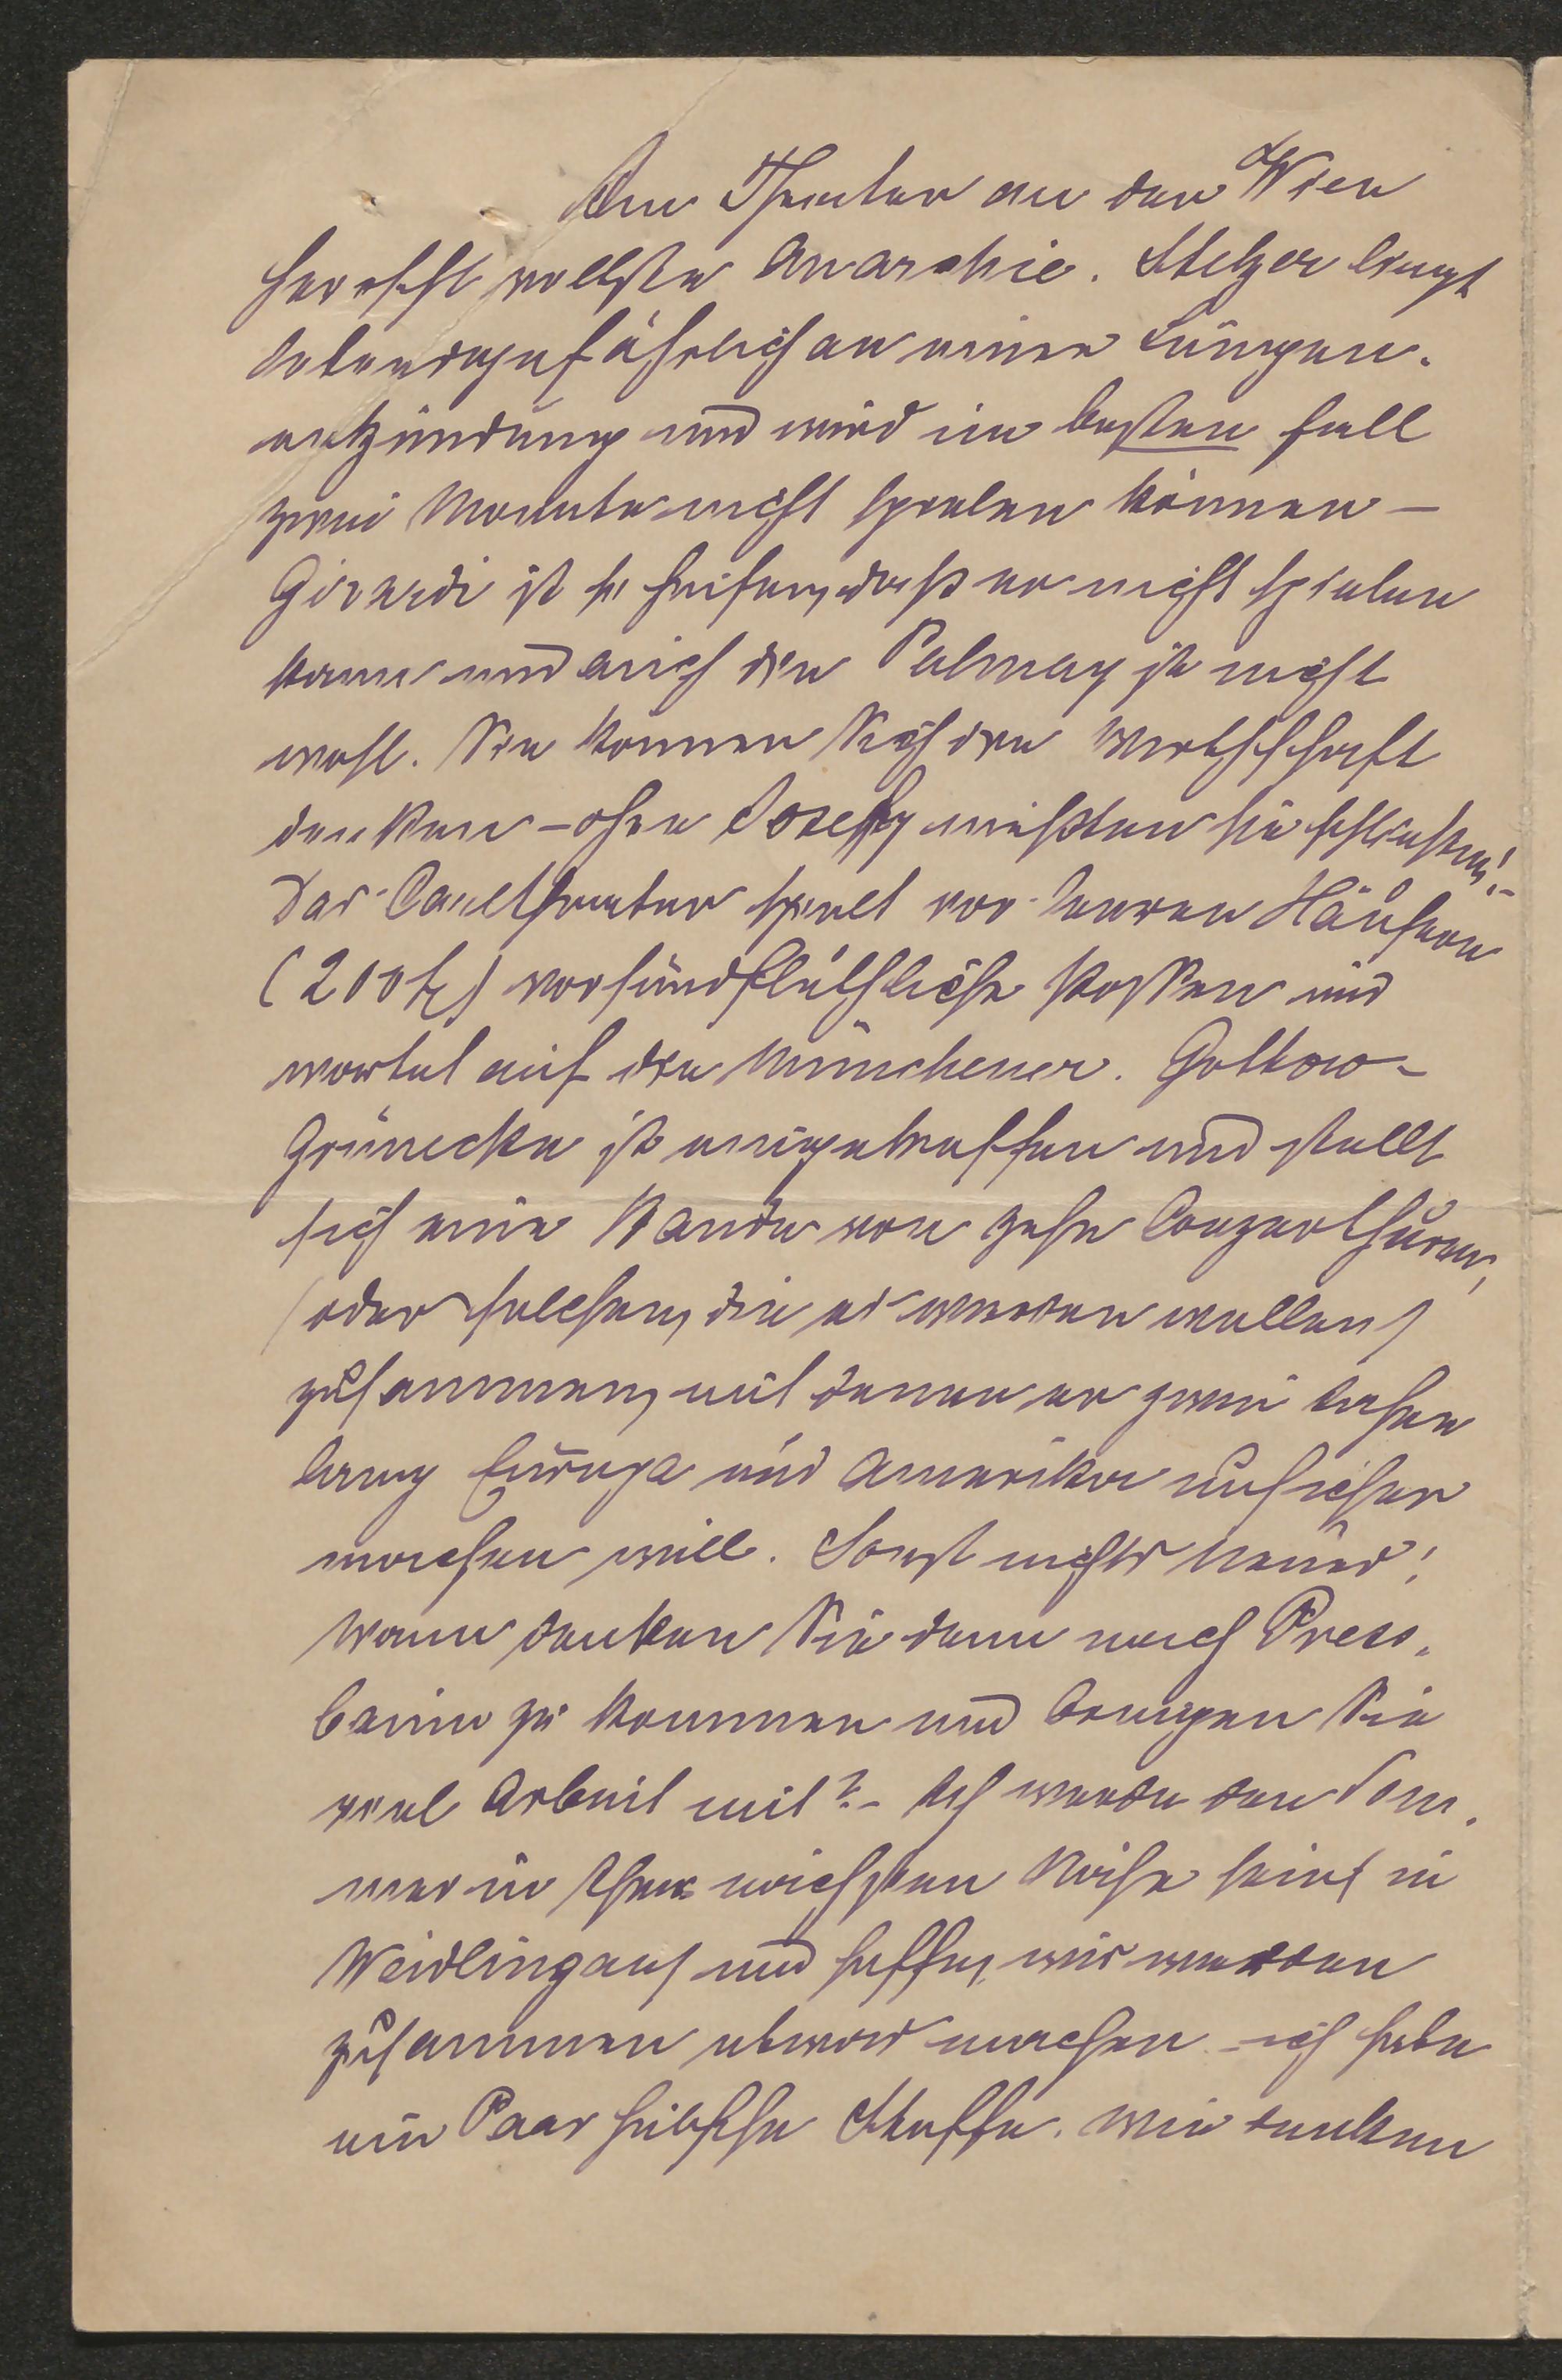 Am Theater an der Wien
herrscht vollste Anarchie. Stelzer liegt
lebensgefährlich an einer Lungen-
entzündung und wird im besten Fall
zwei Monate nicht spielen können –
Girardi ist so heiser, daß er nicht spielen
kann und auch die Palmay ist nicht
wohl. Sie können Sich die Wirthschaft
denken – ohne Josephy müßten sie schließen! –
Das Carltheater spielt vor leeren Häusern
(200 fl) vorsündfluthliche Possen und
wartet auf die Münchener. Gottow-
Grünecke ist eingetroffen und stellt
sich eine Bande von zehn Conzerthuren,
(oder solchen, die es werden wollen)
zusammen, mit denen er zwei Jahre
lang Europa und Amerika unsicher
machen will. Sonst nichts Neues!
Wann denken Sie denn nach Press-
baum zu kommen und bringen Sie
viel Arbeit mit? – Ich werde den Som-
mer in Ihrer nächsten Nähe sein in
Weidlingau und hoffe, wir werden
zusammen etwas machen – ich habe
ein Paar hübsche Stoffe. Wie denken